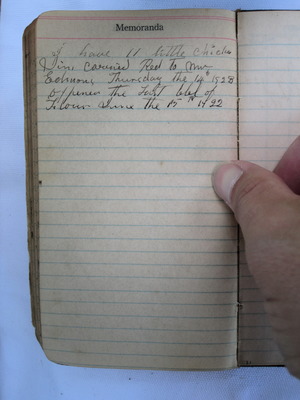 Memoranda
I have 11 little chicks
Jim carried Red to Mr
Thursday the 19th 1928
Opened the First bbl of
Flour June the 15th 1922